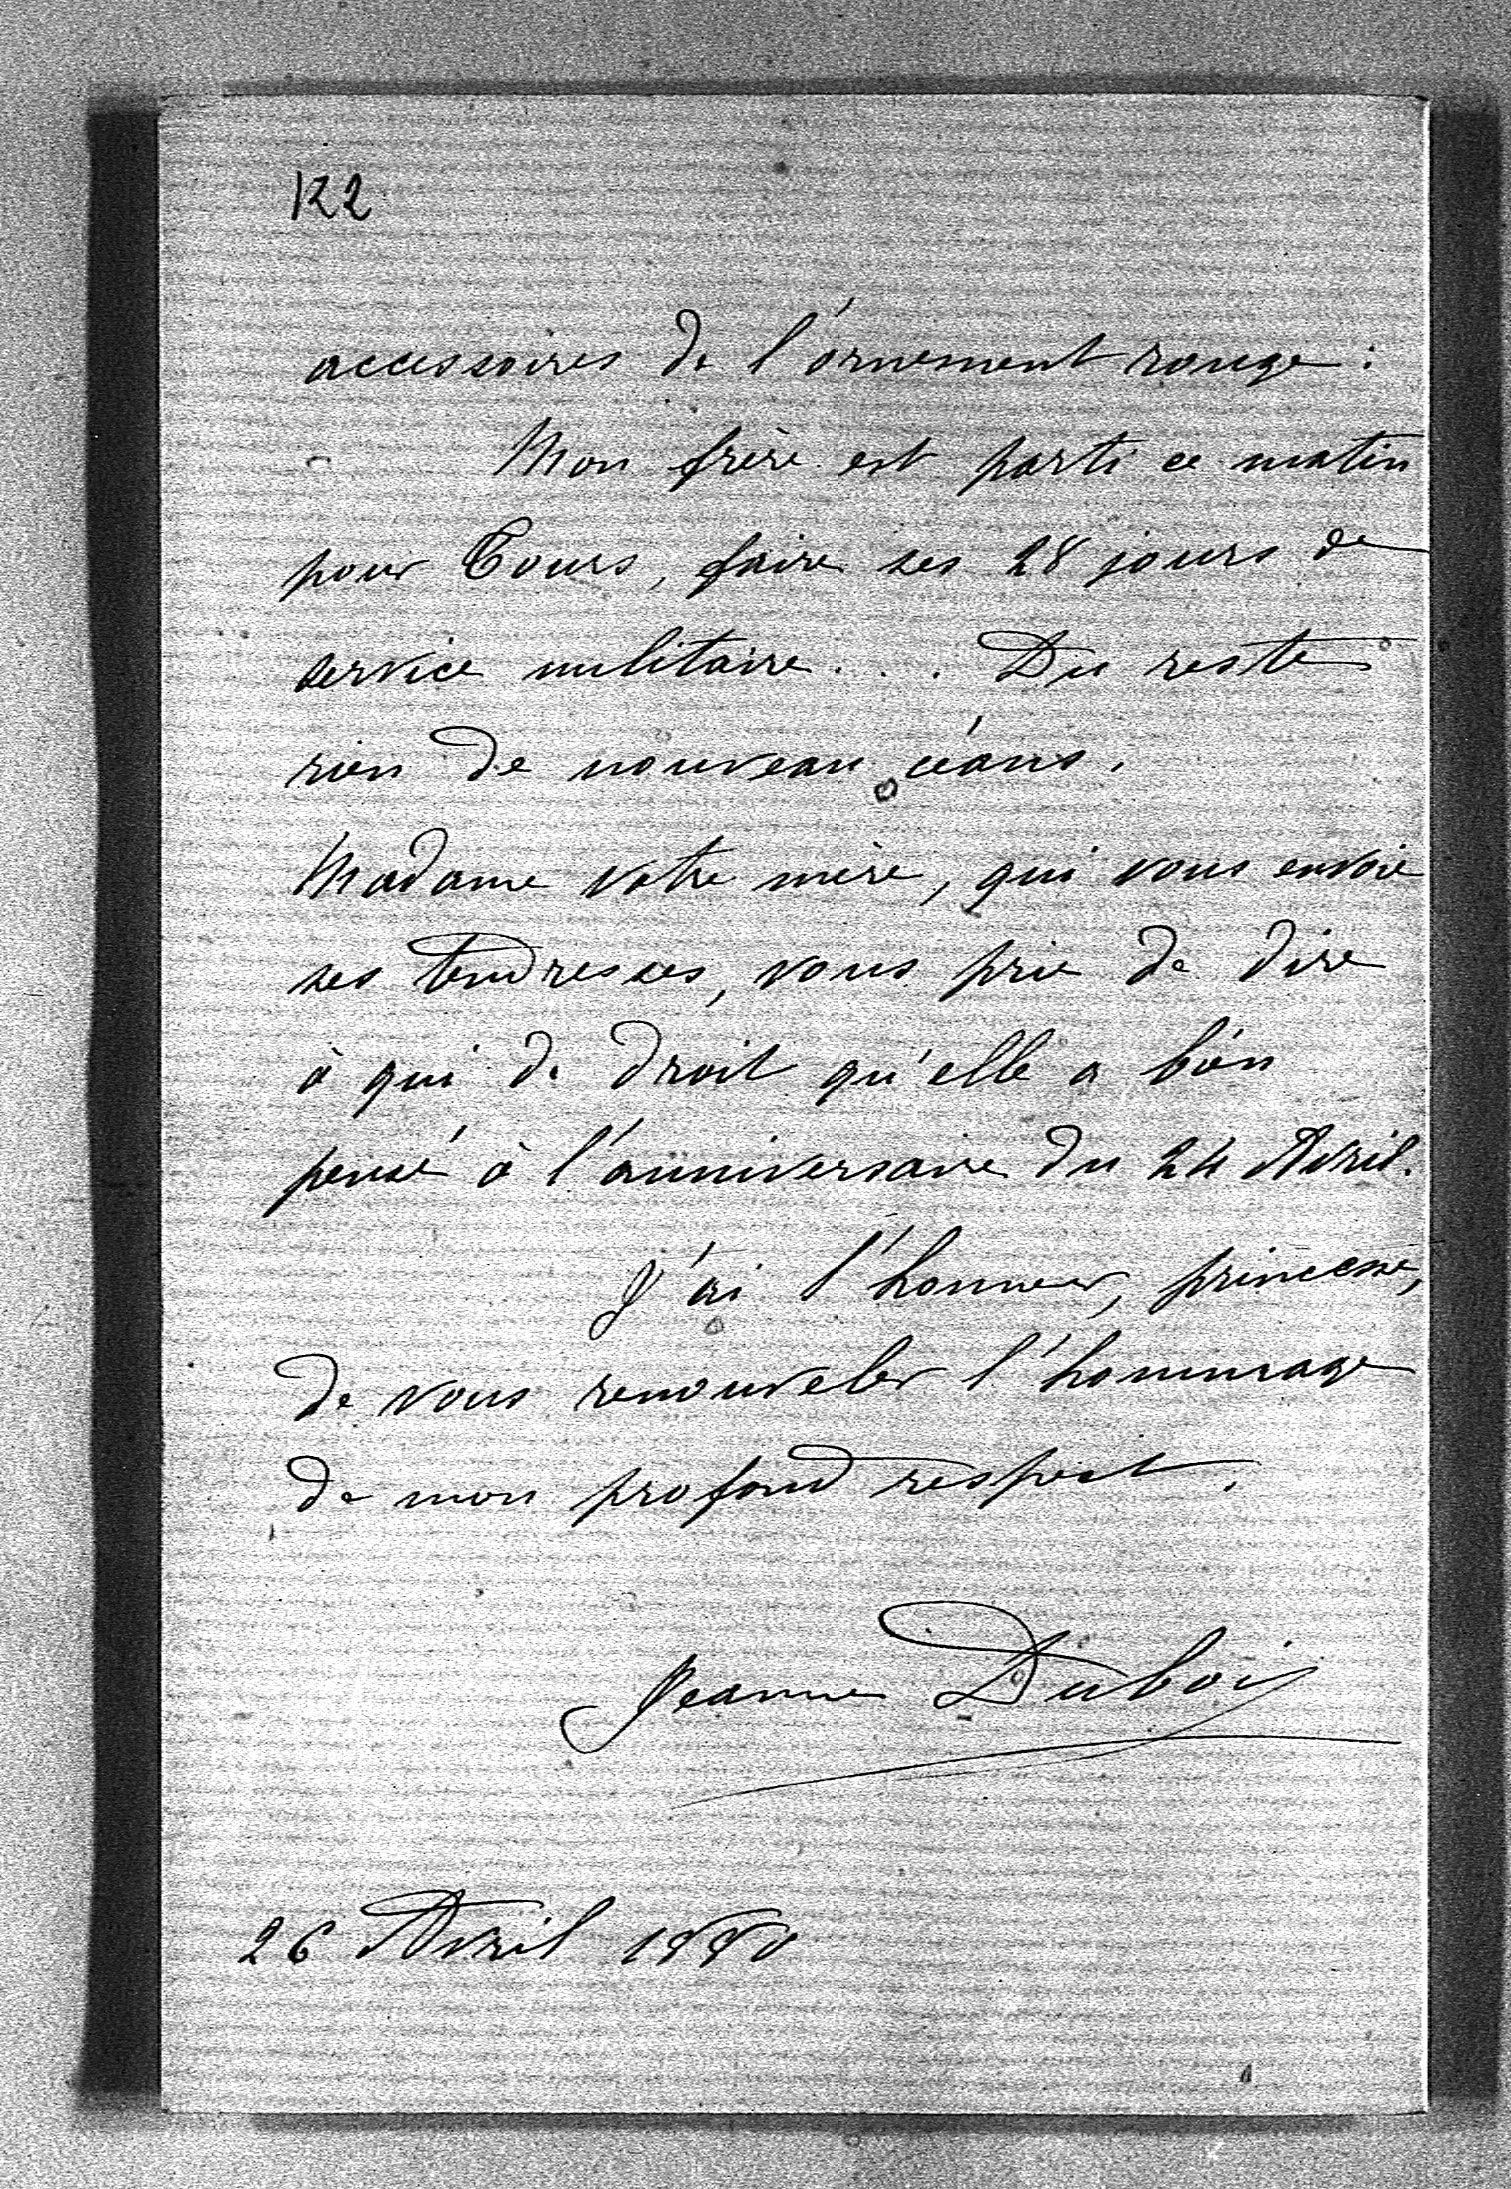 122
accessoires de l'ornement rouge :
Mon frère est parti ce matin
pour Tours, faire ses 28 jours de
service militaire . . . Du reste
rien de nouveau céans.
Madame votre mère, qui vous envoie
ses tendresses, vous prie de dire
à qui de droit qu'elle a bien
pensé à l'anniversaire du 24 Avril.
J'ai l'honneur, princesse,
de vous renouveler l'hommage
de mon profond respect.
Jeanne Dubois
26 Avril 1880